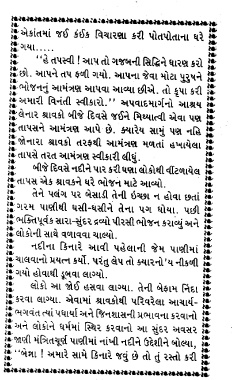 એકાંતમાં જઈ કંઈક વિચારણા કરી પોતપોતાના ઘરે
ગયા.....
"હે તપસ્વી ! આપ તો ગજબની સિદ્ધિને ધારણ કરો
છો. આપને તપ ફળી ગયો. આપના જેવા મોટા પુરુષને
ભોજનનું આમંત્રણ આપવા આવ્યા છીએ. તો કૃપા કરી
અમારી વિનંતી સ્વીકારો." અપવાદમાર્ગનો આશ્રય
લેનાર શ્રાવકો બીજે દિવસે જઈને મિથ્યાત્વી એવા પણ
તાપસને આમંત્રણ આપે છે. ક્યારેય સામું પણ નહિ
જોનારા શ્રાવકો તરફથી આમંત્રણ મળતાં હરખાયેલા
તાપસે તરત આમંત્રણ સ્વીકારી લીધું.
બીજે દિવસે નદીને પાર કરી ઘણા લોકોથી વીંટળાયેલ
તાપસ એક શ્રાવકને ઘરે ભોજન માટે આવ્યો.
તેને પલંગ પર બેસાડી તેની ઇચ્છા ન હોવા છતાં
ગરમ પાણીથી ઘસી-ઘસીને તેના પગ ધોયા. પછી
ભક્તિપૂર્વક સારા-સુંદર દ્રવ્યો પીરસી ભોજન કરાવ્યું અને
લોકોની સાથે વળાવવા ચાલ્યો.
નદીના કિનારે આવી પહેલાની જેમ પાણીમાં
ચાલવાનો પ્રયત્ન કર્યો. પરંતુ લેપ તો ક્યારનો'ય નીકળી
ગયો હોવાથી ડૂબવા લાગ્યો.
લોકો આ જોઈ હસવા લાગ્યા. તેની બેફામ નિંદા
કરવા લાગ્યા. એવામાં શ્રાવકોથી પરિવરેલા આચાર્ય-
ભગવંત ત્યાં પધાર્યા અને જિનશાસની પ્રભાવના કરવાનો
અને લોકોને ધર્મમાં સ્થિર કરવાનો આ સુંદર અવસર
જાણી મંત્રિતચૂર્ણ પાણીમાં નાંખી નદીને ઉદેશીને બોલ્યા,
"બેન્ના ! અમારે સામે કિનારે જવું છે તો તું રસ્તો કરી